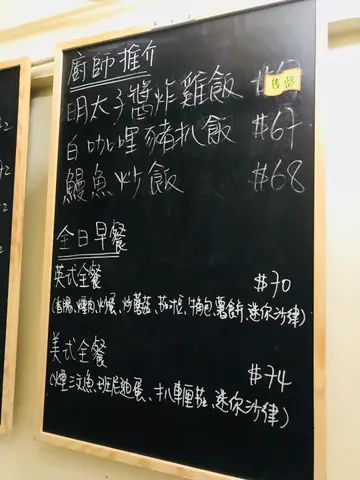 廚師推介
明太子醬炸雞飯
售罄
白咖喱豬扒飯 $67
鰻魚炒飯 $68
全日早餐
英式全餐 $70
(香腸、煙肉、炒蛋、炒蘑菇、茄汁豆、牛角包、薯餅、迷你沙律)
美式全餐 $74
(煙三文魚、班尼迪蛋、扒車厘茄、迷你沙律)